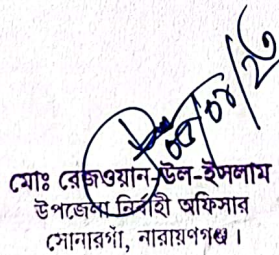 মোঃ রেজওয়ান-উল-ইসলাম
উপজেলা নির্বাহী অফিসার
সোনারগাঁ, নারায়ণগঞ্জ।